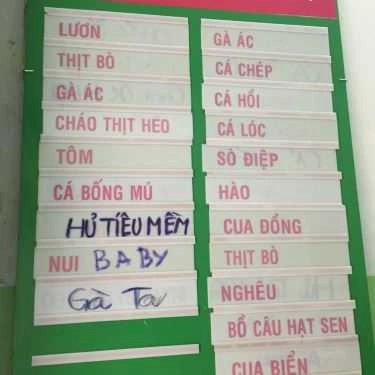 LƯƠN
THỊT BÒ
GÀ ÁC
CHÁO THỊT HEO
TÔM
CÁ BỐNG MÚ
HỦ TIẾU MỀM
NUI BABY
Gà Ta
GÀ ÁC
CÁ CHÉP
CÁ HỒI
CÁ LÓC
SÒ ĐIỆP
HÀO
CUA ĐỒNG
THỊT BÒ
NGHÊU
BỒ CÂU HẠT SEN
CUA BIỂN